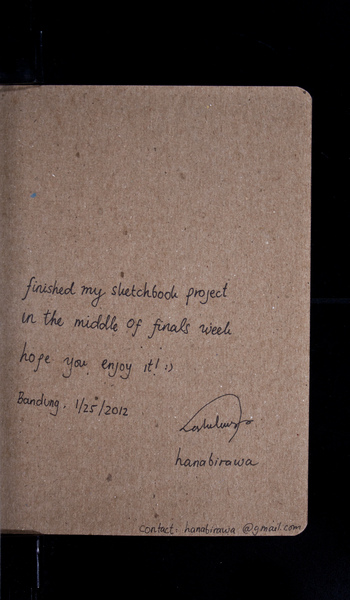 finished my sketchbook project
in the middle of finals week
hope you enjoy it! :)
Bandung, 1/25/2012
hanabirawa
contact: hanabirawa @gmail.com